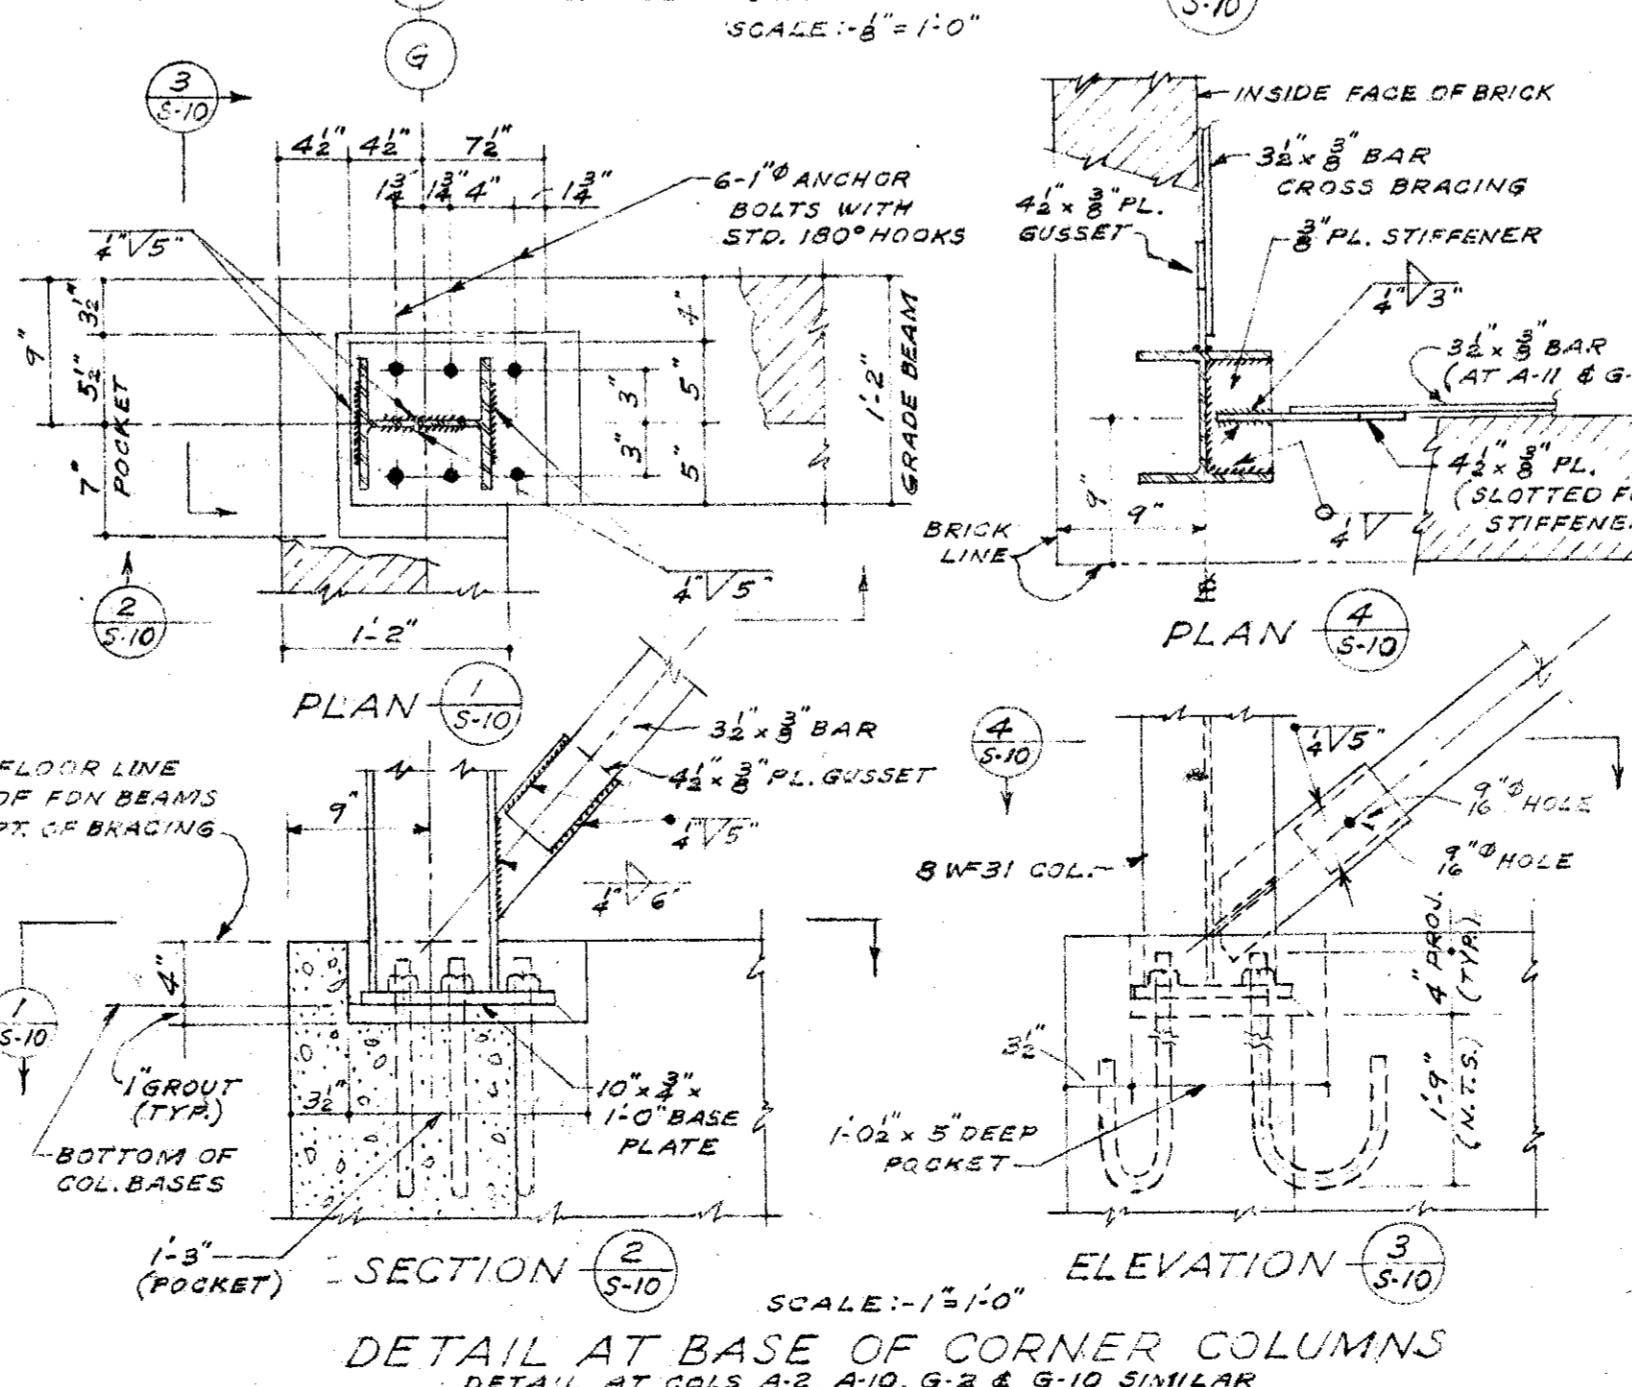 S-10
SCALE:-1/8"=1'-0"
G
3
S-10
4 1/2" 4 1/2" 7 1/2"
1 3/4" 1 3/4" 4" 1 3/4"
6-1"φ ANCHOR
BOLTS WITH
STD. 180° HOOKS
1/4" 5"
9"
3 1/2"
5 1/2"
7"
POCKET
3"
3"
4"
5"
5"
1'-2"
GRADE BEAM
1/4" 5"
2
S-10
1'-2"
PLAN
1
S-10
INSIDE FACE OF BRICK
3 1/2" x 3/8" BAR
CROSS BRACING
4 1/2" x 3/8" PL.
GUSSET
3/8" PL. STIFFENER
1/4" 3"
3 1/2" x 3/8" BAR
(AT A-11 & G-
4 1/2" x 3/8" PL.
(SLOTTED
STIFFENE
9"
9"
1/4"
BRICK
LINE
PLAN
4
S-10
FLOOR LINE
OF FDN BEAMS
PT. OF BRACING
9"
3 1/2" x 3/8" BAR
4 1/2" x 3/8" PL. GUSSET
1/4" 5"
1/4" 6"
4"
1
S-10
1" GROUT
(TYP.)
BOTTOM OF
COL. BASES
3 1/2"
10" x 3/4" x
1'-0" BASE
PLATE
1'-3"
(POCKET)
SECTION
2
S-10
4
S-10
1/4" 5"
9/16"φ HOLE
9/16"φ HOLE
8 WF 31 COL.
4" PROJ.
(TYP.)
1'-9"
(N.T.S.)
3 1/2"
1'-0 1/2" x 5" DEEP
POCKET
ELEVATION
3
S-10
SCALE:-1"=1'-0"
DETAIL AT BASE OF CORNER COLUMNS
DETAIL AT COLS A-2, A-10, G-2 & G-10 SIMILAR